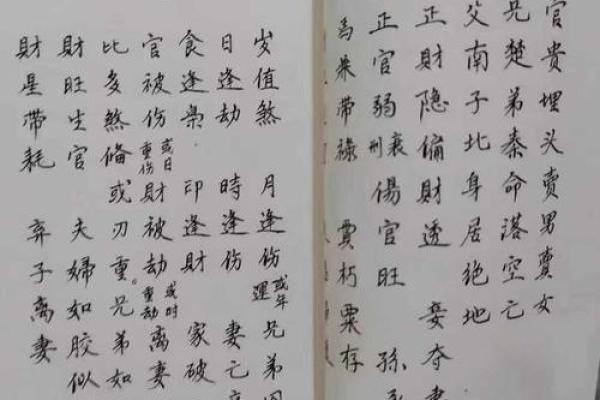 官貴埋头賣男賣女
兄楚弟秦命落空亡
父南子北身居绝地
正財隐偏財透 妾夺
正官弱 衰 刑 傷官旺 孫
馬来帶祿 貫朽粟存
岁值煞 月逢伤 或年運 兄弟
日逢劫 時逢伤 妻亡
食逢枭 印逢財 家破
官被伤 或日重伤 財被劫 或时重劫 离妻
比多煞偹 或刃重。兄弟如
財旺生官 夫婦如胶似
財星帶耗 弃子离妻